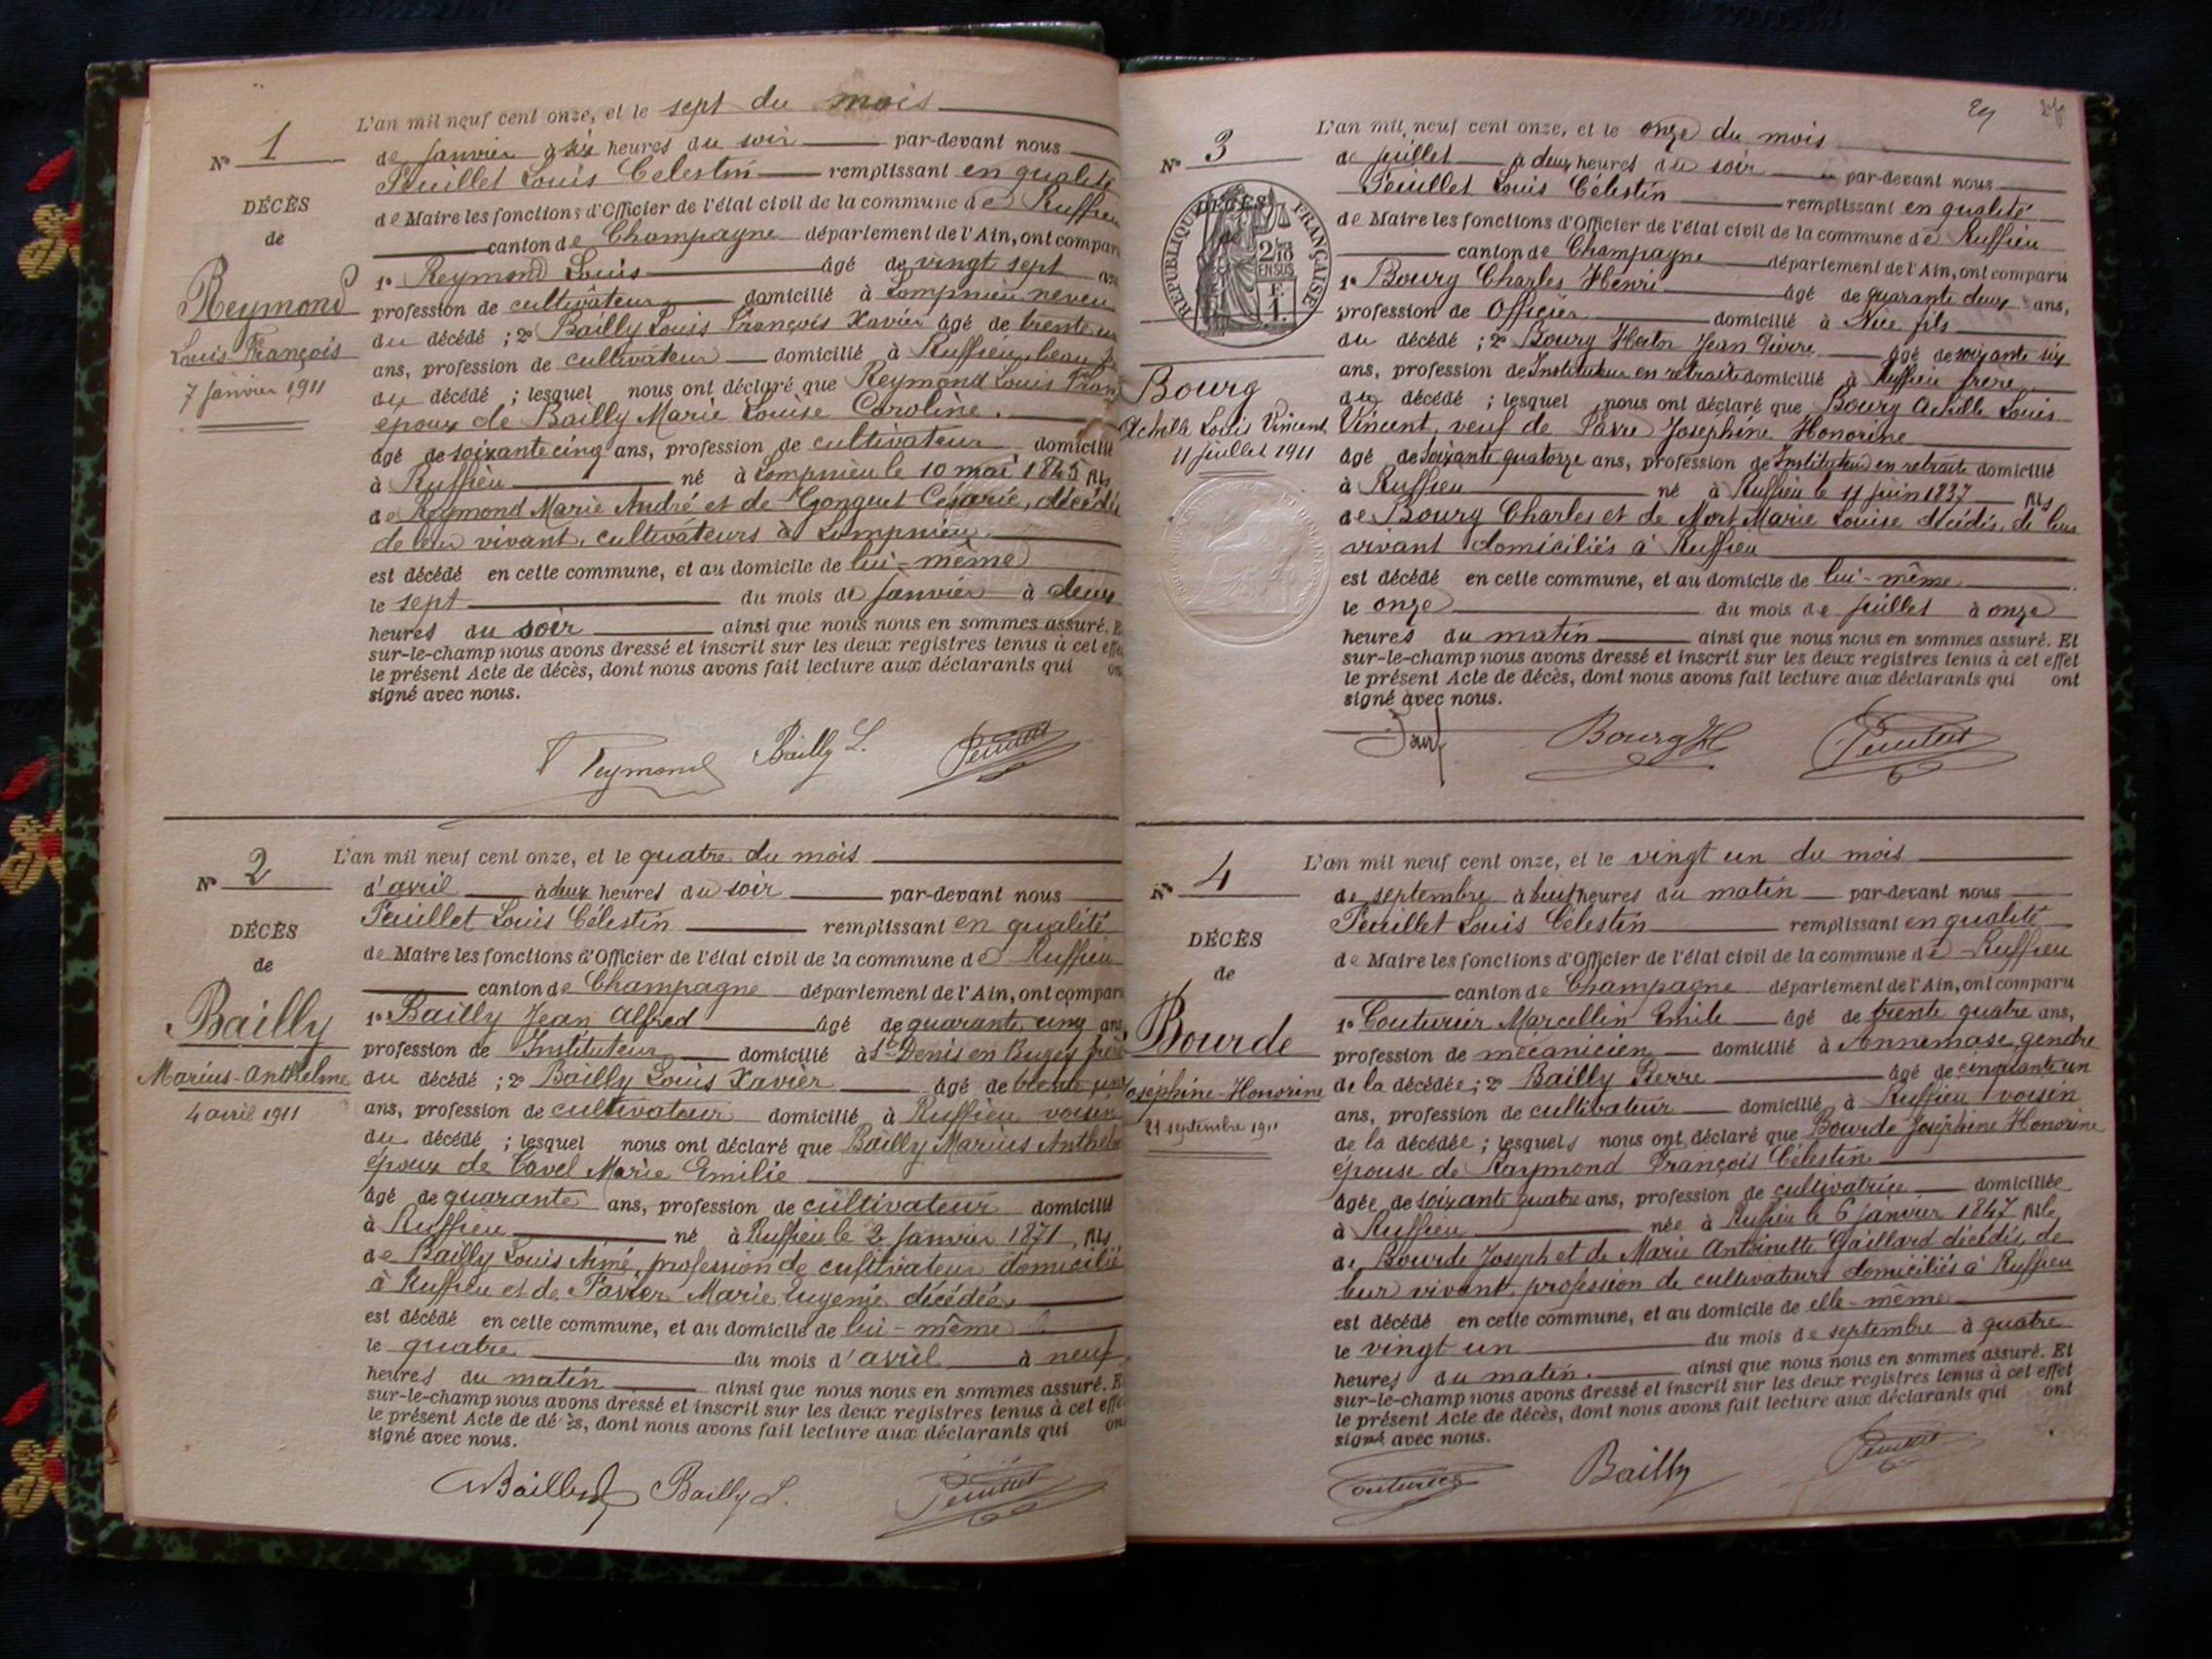 L'an mil neuf cent onze, et le sept du mois
N° 1
de janvier à six heures du soir par-devant nous
Peuillet Louis Célestin remplissant en qualité
DÉCÈS
de Maire les fonctions d'Officier de l'état civil de la commune de Ruffieu
de
canton de Champagne département de l'Ain, ont compar
1° Reymond Louis âgé de vingt sept ans
Reymond
profession de cultivateur domicilié à Lompnieu neveu
Louis François
du décédé ; 2° Bailly Louis François Xavier âgé de trente un
7 janvier 1911
ans, profession de cultivateur domicilié à Ruffieu, beau
du décédé ; lesquel nous ont déclaré que Reymond Louis Fran
époux de Bailly Marie Louise Caroline.
âgé de soixante cinq ans, profession de cultivateur domicilié
à Ruffieu né à Lompnieu le 10 mai 1845 fils
de Reymond Marie André et de Gonguet Césarie, décédés
de leur vivant, cultivateurs à Lompnieu
est décédé en cette commune, et au domicile de lui-même
le sept du mois de janvier à deux
heures du soir ainsi que nous nous en sommes assuré. E
sur-le-champ nous avons dressé et inscrit sur les deux registres tenus à cet effe
le présent Acte de décès, dont nous avons fait lecture aux déclarants qui on
signé avec nous.
Reymond Bailly L. Peuillet
L'an mil neuf cent onze, et le quatre du mois
N° 2
d'avril à deux heures du soir par-devant nous
Peuillet Louis Célestin remplissant en qualité
DÉCÈS
de Maire les fonctions d'Officier de l'état civil de la commune de Ruffieu
de
canton de Champagne département de l'Ain, ont compar
1° Bailly Jean Alfred âgé de quarante cinq ans
Bailly
profession de Instituteur domicilié à St Denis en Bugey frère
Marius-Anthelme
du décédé ; 2° Bailly Louis Xavier âgé de trente un
4 avril 1911
ans, profession de cultivateur domicilié à Ruffieu voisin
du décédé ; lesquel nous ont déclaré que Bailly Marius Anthel
époux de Cavel Marie Emilie
âgé de quarante ans, profession de cultivateur domicilié
à Ruffieu né à Ruffieu le 2 janvier 1871, fils
de Bailly Louis Aimé, profession de cultivateur domicilié
à Ruffieu et de Favier Marie Eugénie décédée,
est décédé en cette commune, et au domicile de lui-même
le quatre du mois d'avril à neuf
heures du matin ainsi que nous nous en sommes assuré. E
sur-le-champ nous avons dressé et inscrit sur les deux registres tenus à cet effe
le présent Acte de décès, dont nous avons fait lecture aux déclarants qui on
signé avec nous.
Bailly Bailly L. Peuillet
L'an mil neuf cent onze, et le onze du mois
N° 3
de juillet à deux heures du soir par-devant nous
Peuillet Louis Célestin remplissant en qualité
DÉCÈS
de Maire les fonctions d'Officier de l'état civil de la commune de Ruffieu
RÉPUBLIQUE FRANÇAISE
2/10 EN SUS
F. 1.
canton de Champagne département de l'Ain, ont comparu
1° Bourg Charles Henri âgé de quarante deux ans,
profession de Officier domicilié à Nice fils
du décédé ; 2° Bourg Hector Jean Pierre âgé de soixante six
ans, profession de Instituteur en retraite domicilié à Ruffieu frère
Bourg
du décédé ; lesquel nous ont déclaré que Bourg Achille Louis
Achille Louis Vincent
Vincent, veuf de Favre Joséphine Honorine
11 juillet 1911
âgé de soixante quatorze ans, profession de Instituteur en retraite domicilié
à Ruffieu né à Ruffieu le 11 juin 1837 fils
de Bourg Charles et de Mort Marie Louise décédés, de leur
vivant domiciliés à Ruffieu
est décédé en cette commune, et au domicile de lui-même
le onze du mois de juillet à onze
heures du matin ainsi que nous nous en sommes assuré. Et
sur-le-champ nous avons dressé et inscrit sur les deux registres tenus à cet effet
le présent Acte de décès, dont nous avons fait lecture aux déclarants qui ont
signé avec nous.
Bourg H Peuillet
L'an mil neuf cent onze, et le vingt un du mois
N° 4
de septembre à huit heures du matin par-devant nous
Peuillet Louis Célestin remplissant en qualité
DÉCÈS
de Maire les fonctions d'Officier de l'état civil de la commune de Ruffieu
de
canton de Champagne département de l'Ain, ont comparu
1° Couturier Marcellin Emile âgé de trente quatre ans,
Bourde
profession de mécanicien domicilié à Annemasse gendre
Joséphine-Honorine
de la décédée ; 2° Bailly Pierre âgé de cinquante un
21 septembre 1911
ans, profession de cultivateur domicilié à Ruffieu voisin
de la décédée ; lesquels nous ont déclaré que Bourde Joséphine Honorine
épouse de Raymond François Célestin
âgée de soixante quatre ans, profession de cultivatrice domiciliée
à Ruffieu née à Ruffieu le 6 janvier 1847 fille
de Bourde Joseph et de Marie Antoinette Gaillard décédés, de
leur vivant, profession de cultivateurs domiciliés à Ruffieu
est décédé en cette commune, et au domicile de elle-même
le vingt un du mois de septembre à quatre
heures du matin. ainsi que nous nous en sommes assuré. Et
sur-le-champ nous avons dressé et inscrit sur les deux registres tenus à cet effet
le présent Acte de décès, dont nous avons fait lecture aux déclarants qui ont
signé avec nous.
Couturier Bailly Peuillet